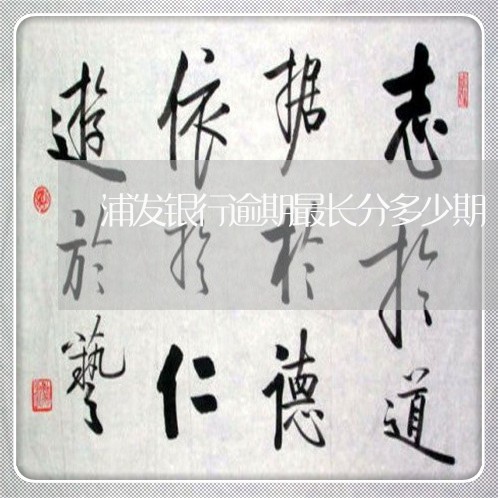 志於道
据於德
依於仁
遊於藝
浦发银行逾期最长分多少期